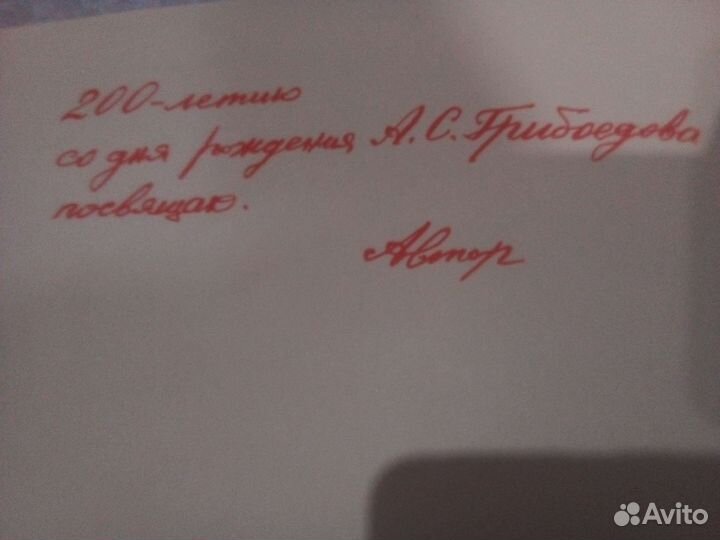 200-летию
со дня рождения А.С. Грибоедова
посвящаю.
Автор
Avito